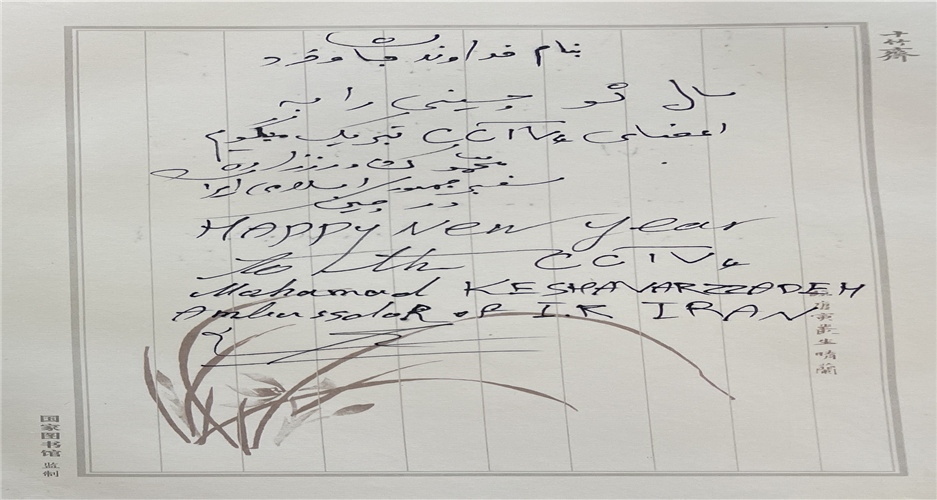 بنام خداوند جان و خرد
سال نو چینی را به
اعضای CCTV4 تبریک میگویم
محمد کشاورززاده
سفیر جمهوری اسلامی ایران
در چین
HAPPY New Year
to the CCTV4
Mohamad KESHAVARZZADEH
AmbassadoR OF I.R IRAN
国家图书馆 监制